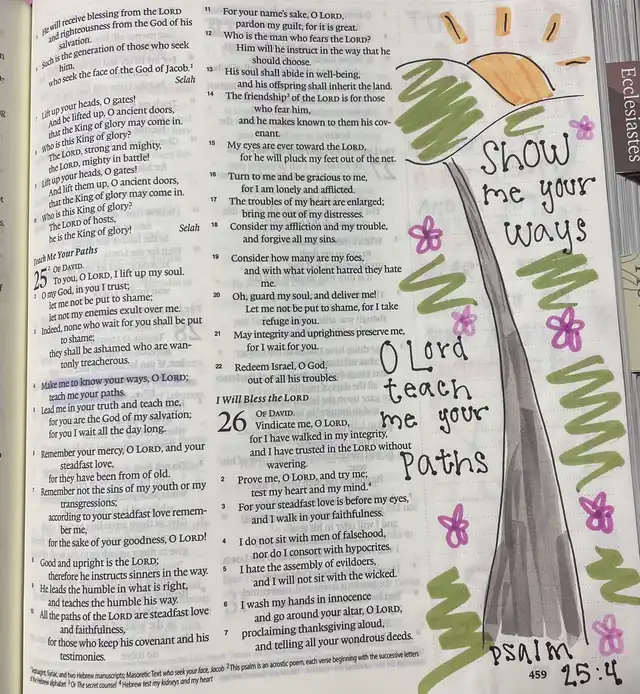 He will receive blessing from the LORD
and righteousness from the God of his
salvation.
Such is the generation of those who seek
him,
who seek the face of the God of Jacob.¹
Selah
7 Lift up your heads, O gates!
And be lifted up, O ancient doors,
that the King of glory may come in.
8 Who is this King of glory?
The LORD, strong and mighty,
the LORD, mighty in battle!
9 Lift up your heads, O gates!
And lift them up, O ancient doors,
that the King of glory may come in.
10 Who is this King of glory?
The LORD of hosts,
he is the King of glory! Selah
Teach Me Your Paths
25² OF DAVID.
To you, O LORD, I lift up my soul.
2 O my God, in you I trust;
let me not be put to shame;
let not my enemies exult over me.
3 Indeed, none who wait for you shall be put
to shame;
they shall be ashamed who are wan-
tonly treacherous.
4 Make me to know your ways, O LORD;
teach me your paths.
5 Lead me in your truth and teach me,
for you are the God of my salvation;
for you I wait all the day long.
6 Remember your mercy, O LORD, and your
steadfast love,
for they have been from of old.
7 Remember not the sins of my youth or my
transgressions;
according to your steadfast love remem-
ber me,
for the sake of your goodness, O LORD!
8 Good and upright is the LORD;
therefore he instructs sinners in the way.
9 He leads the humble in what is right,
and teaches the humble his way.
10 All the paths of the LORD are steadfast love
and faithfulness,
for those who keep his covenant and his
testimonies.
11 For your name's sake, O LORD,
pardon my guilt, for it is great.
12 Who is the man who fears the LORD?
Him will he instruct in the way that he
should choose.
13 His soul shall abide in well-being,
and his offspring shall inherit the land.
14 The friendship³ of the LORD is for those
who fear him,
and he makes known to them his cov-
enant.
15 My eyes are ever toward the LORD,
for he will pluck my feet out of the net.
16 Turn to me and be gracious to me,
for I am lonely and afflicted.
17 The troubles of my heart are enlarged;
bring me out of my distresses.
18 Consider my affliction and my trouble,
and forgive all my sins.
19 Consider how many are my foes,
and with what violent hatred they hate
me.
20 Oh, guard my soul, and deliver me!
Let me not be put to shame, for I take
refuge in you.
21 May integrity and uprightness preserve me,
for I wait for you.
22 Redeem Israel, O God,
out of all his troubles.
I Will Bless the LORD
26 OF DAVID.
Vindicate me, O LORD,
for I have walked in my integrity,
and I have trusted in the LORD without
wavering.
2 Prove me, O LORD, and try me;
test my heart and my mind.⁴
3 For your steadfast love is before my eyes,
and I walk in your faithfulness.
4 I do not sit with men of falsehood,
nor do I consort with hypocrites.
5 I hate the assembly of evildoers,
and I will not sit with the wicked.
6 I wash my hands in innocence
and go around your altar, O LORD,
7 proclaiming thanksgiving aloud,
and telling all your wondrous deeds.
Syriac, and two Hebrew manuscripts; Masoretic Text who seek your face, Jacob ² This psalm is an acrostic poem, each verse beginning with the successive letters
of the Hebrew alphabet ³ Or The secret counsel ⁴ Hebrew test my kidneys and my heart
459
Show
me your
ways
O Lord
teach
me your
paths
psalm
25:4
Ecclesiastes